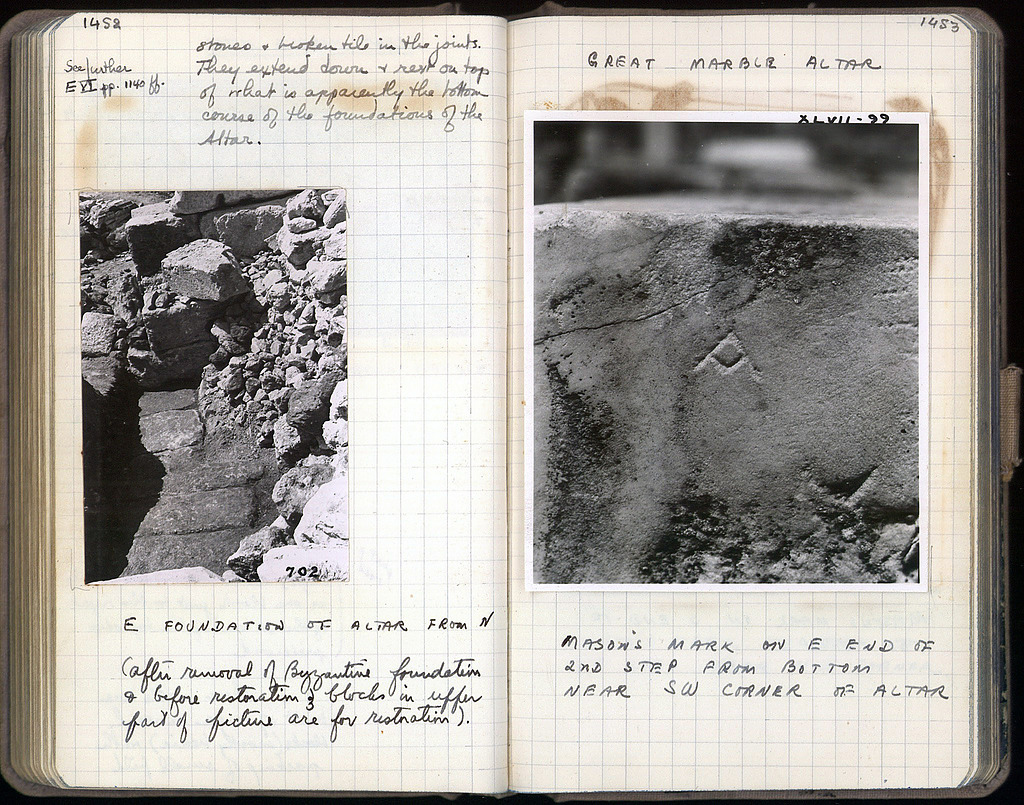 1452
See further
E VI pp. 1140 ff.
stones & broken tile in the joints.
They extend down & rest on top
of what is apparently the bottom
course of the foundations of the
Altar.
702
E FOUNDATION OF ALTAR FROM N
(after removal of Byzantine foundation
& before restoration; blocks in upper
part of picture are for restoration).
1453
GREAT MARBLE ALTAR
XLVII-99
MASON'S MARK ON E END OF
2ND STEP FROM BOTTOM
NEAR SW CORNER OF ALTAR